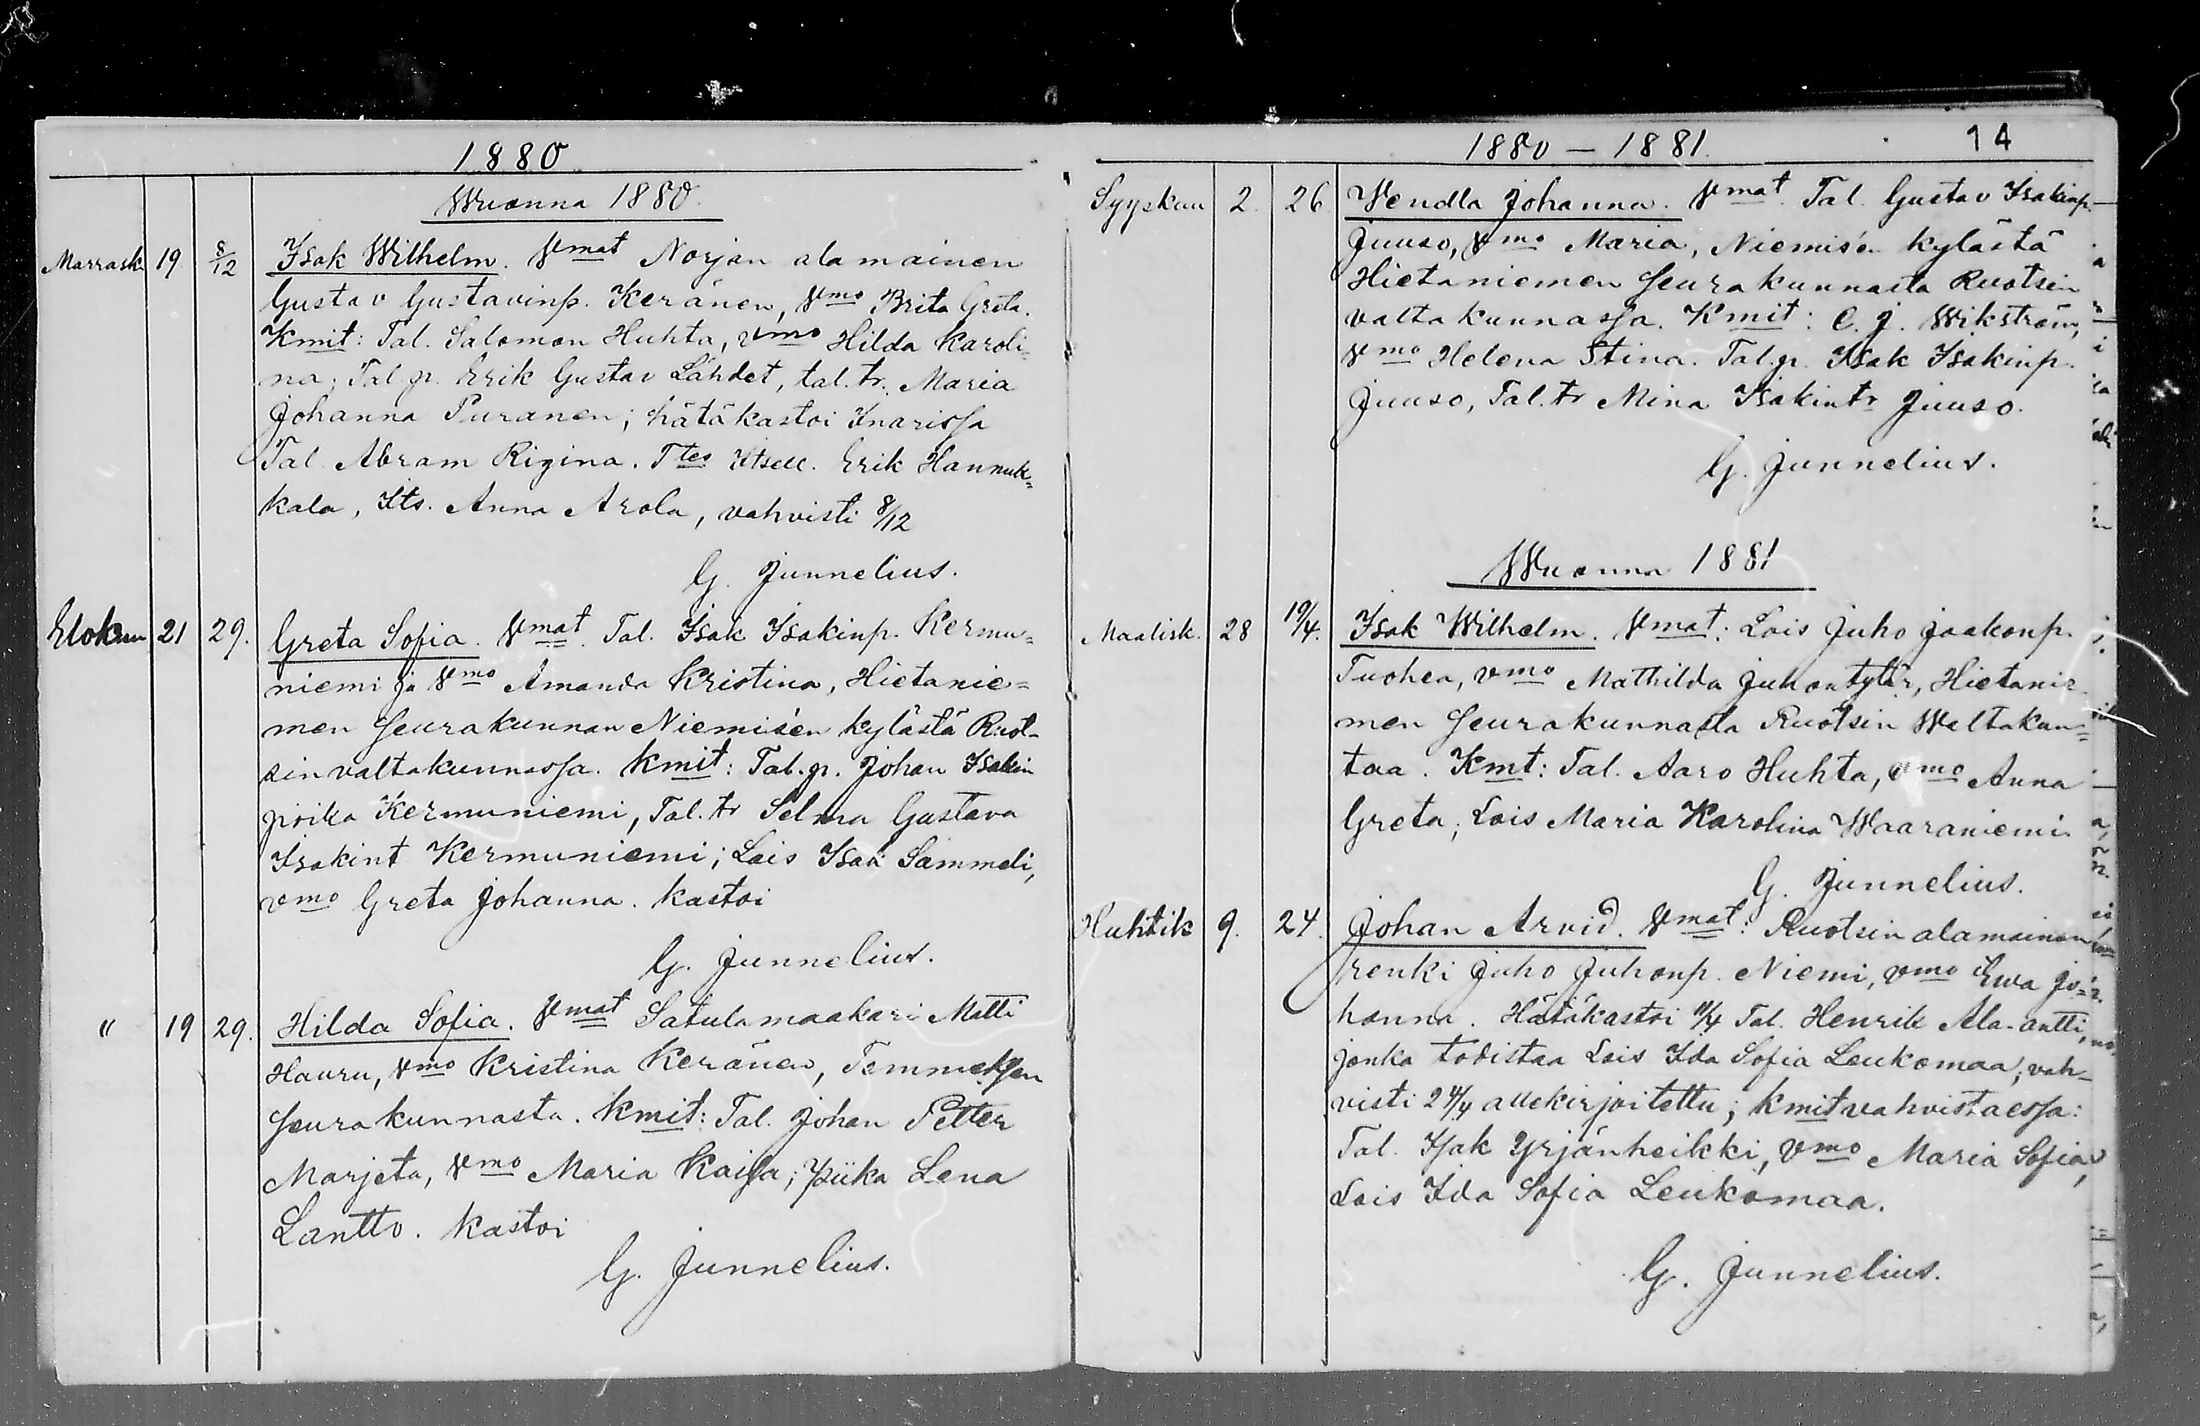 1880
Wuonna 1880.
Marrask. 19 8/12 Isak Wilhelm. Vmat Norjan alamainen
Gustav Gustavinp. Keränen, Vmo Brita Greta.
Kmit: Tal. Salomon Huhta, vmo Hilda Karoli-
na; Tal.p. Erik Gustav Lähdet, tal.tr. Maria
Johanna Puranen; hätäkastoi Inarissa
Tal. Abram Rigina. Ttes Itsell. Erik Hannuk-
kala, Its. Anna Arola, vahvisti 8/12
G. Junnelius.
Elokuu 21 29. Greta Sofia. Vmat. Tal. Isak Isakinp. Kermu-
niemi ja Vmo Amanda Kristina, Hietanie-
men seurakunnan Niemisén kylästä Ruot-
sin valtakunnassa. Kmit: Tal.p. Johan Isakin
poika Kermuniemi, Tal.tr Selma Gustava
Isakint Kermuniemi; Lois Isak Sammeli,
vmo Greta Johanna. Kastoi
G. Junnelius.
" 19 29. Hilda Sofia. Vmat Satulamaakari Matti
Hauru, Vmo Kristina Keränen, Temmeksen
seurakunnasta. Kmit: Tal. Johan Petter
Marjeta, Vmo Maria Kaisa; piika Lena
Lantto. Kastoi
G. Junnelius.
1880 — 1881. 14
Syyskuu 2. 26 Wendla Johanna. Vmat. Tal. Gustav Isakinp.
Juuso, Vmo Maria, Niemisén kylästä
Hietaniemen seurakunnasta Ruotsin
valtakunnassa. Kmit: C. J. Wikström,
Vmo Helena Stina. Tal.p. Isak Isakinp.
Juuso, Tal.tr Mina Isakintr Juuso.
G. Junnelius.
Wuonna 1881
Maalisk. 28 19/4. Isak Wilhelm. Vmat: Lois Juho Jaakonp.
Tuohea, vmo Mathilda Juhontytär, Hietanie-
men seurakunnasta Ruotsin Waltakun-
taa. Kmt: Tal. Aaro Huhta, vmo Anna
Greta; Lois Maria Karolina Waaraniemi.
G. Junnelius.
Huhtik 9. 24. Johan Arvid. Vmat: Ruotsin alamainen
renki Juho Juhonp. Niemi, vmo Ewa Jo-
hanna. Hätäkastoi 11/4 Tal. Henrik Ala-antti,
jonka todistaa Lois Ida Sofia Leukomaa; vah-
visti 24/4 allekirjoitettu; kmit vahvistaessa:
Tal. Isak Yrjänheikki, Vmo Maria Sofia,
Lois Ida Sofia Leukomaa.
G. Junnelius.